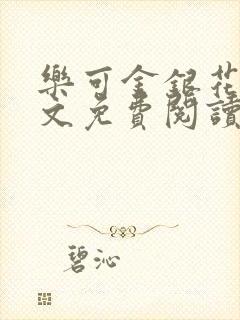 樂可金銀花
文免費閱讀
碧沁